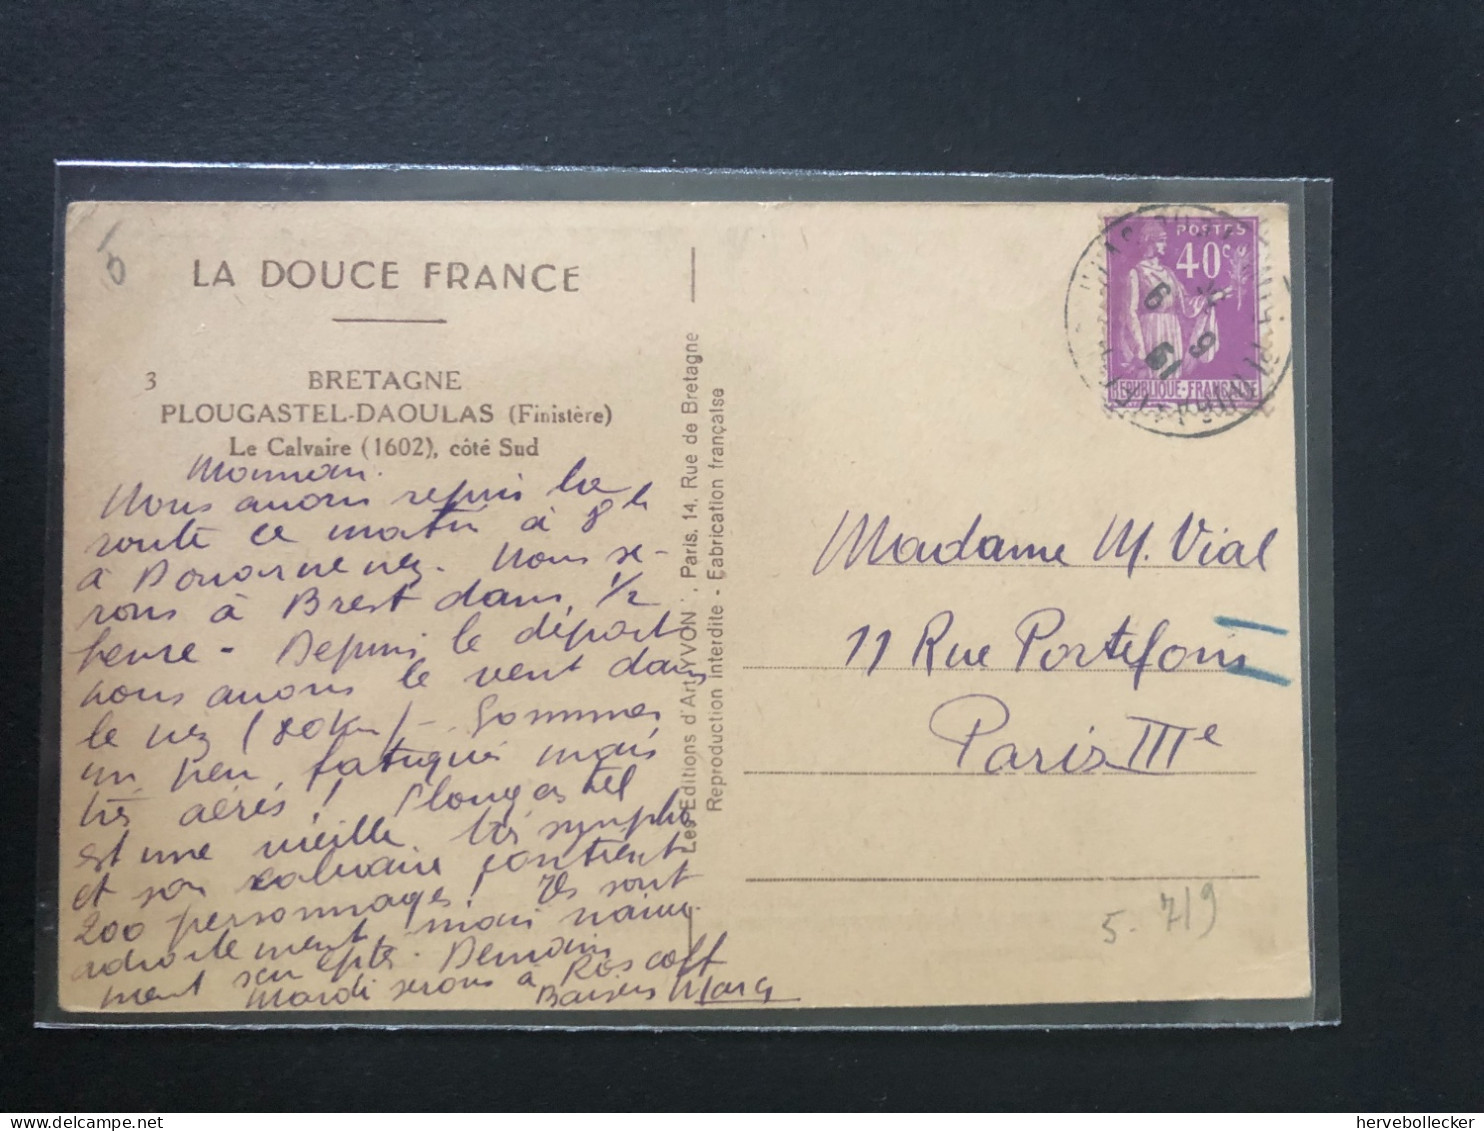 LA DOUCE FRANCE
3
BRETAGNE
PLOUGASTEL-DAOULAS (Finistère)
Le Calvaire (1602), côté Sud
Maman.
Nous avons repris la
route ce matin à 8 h
à Douarnenez. Nous se-
rons à Brest dans 1/2
heure - Depuis le départ
nous avons le vent dans
le nez (80 km) - Sommes
un peu fatigués mais
très aérés! Plougastel
est une vieille très sympho
et son calvaire contient
200 personnages! Ils sont
adroitement, mais naïve-
ment sculptés. Demain
Mardi serons à Roscoff
Baisers Marc
Les Editions d'Art "YVON", Paris, 14, Rue de Bretagne
Reproduction interdite - Fabrication française
POSTES
40 c
REPUBLIQUE-FRANÇAISE
Madame M. Vial
11 Rue Portefoin
Paris IIIe
5. 7/9
hervebollecker